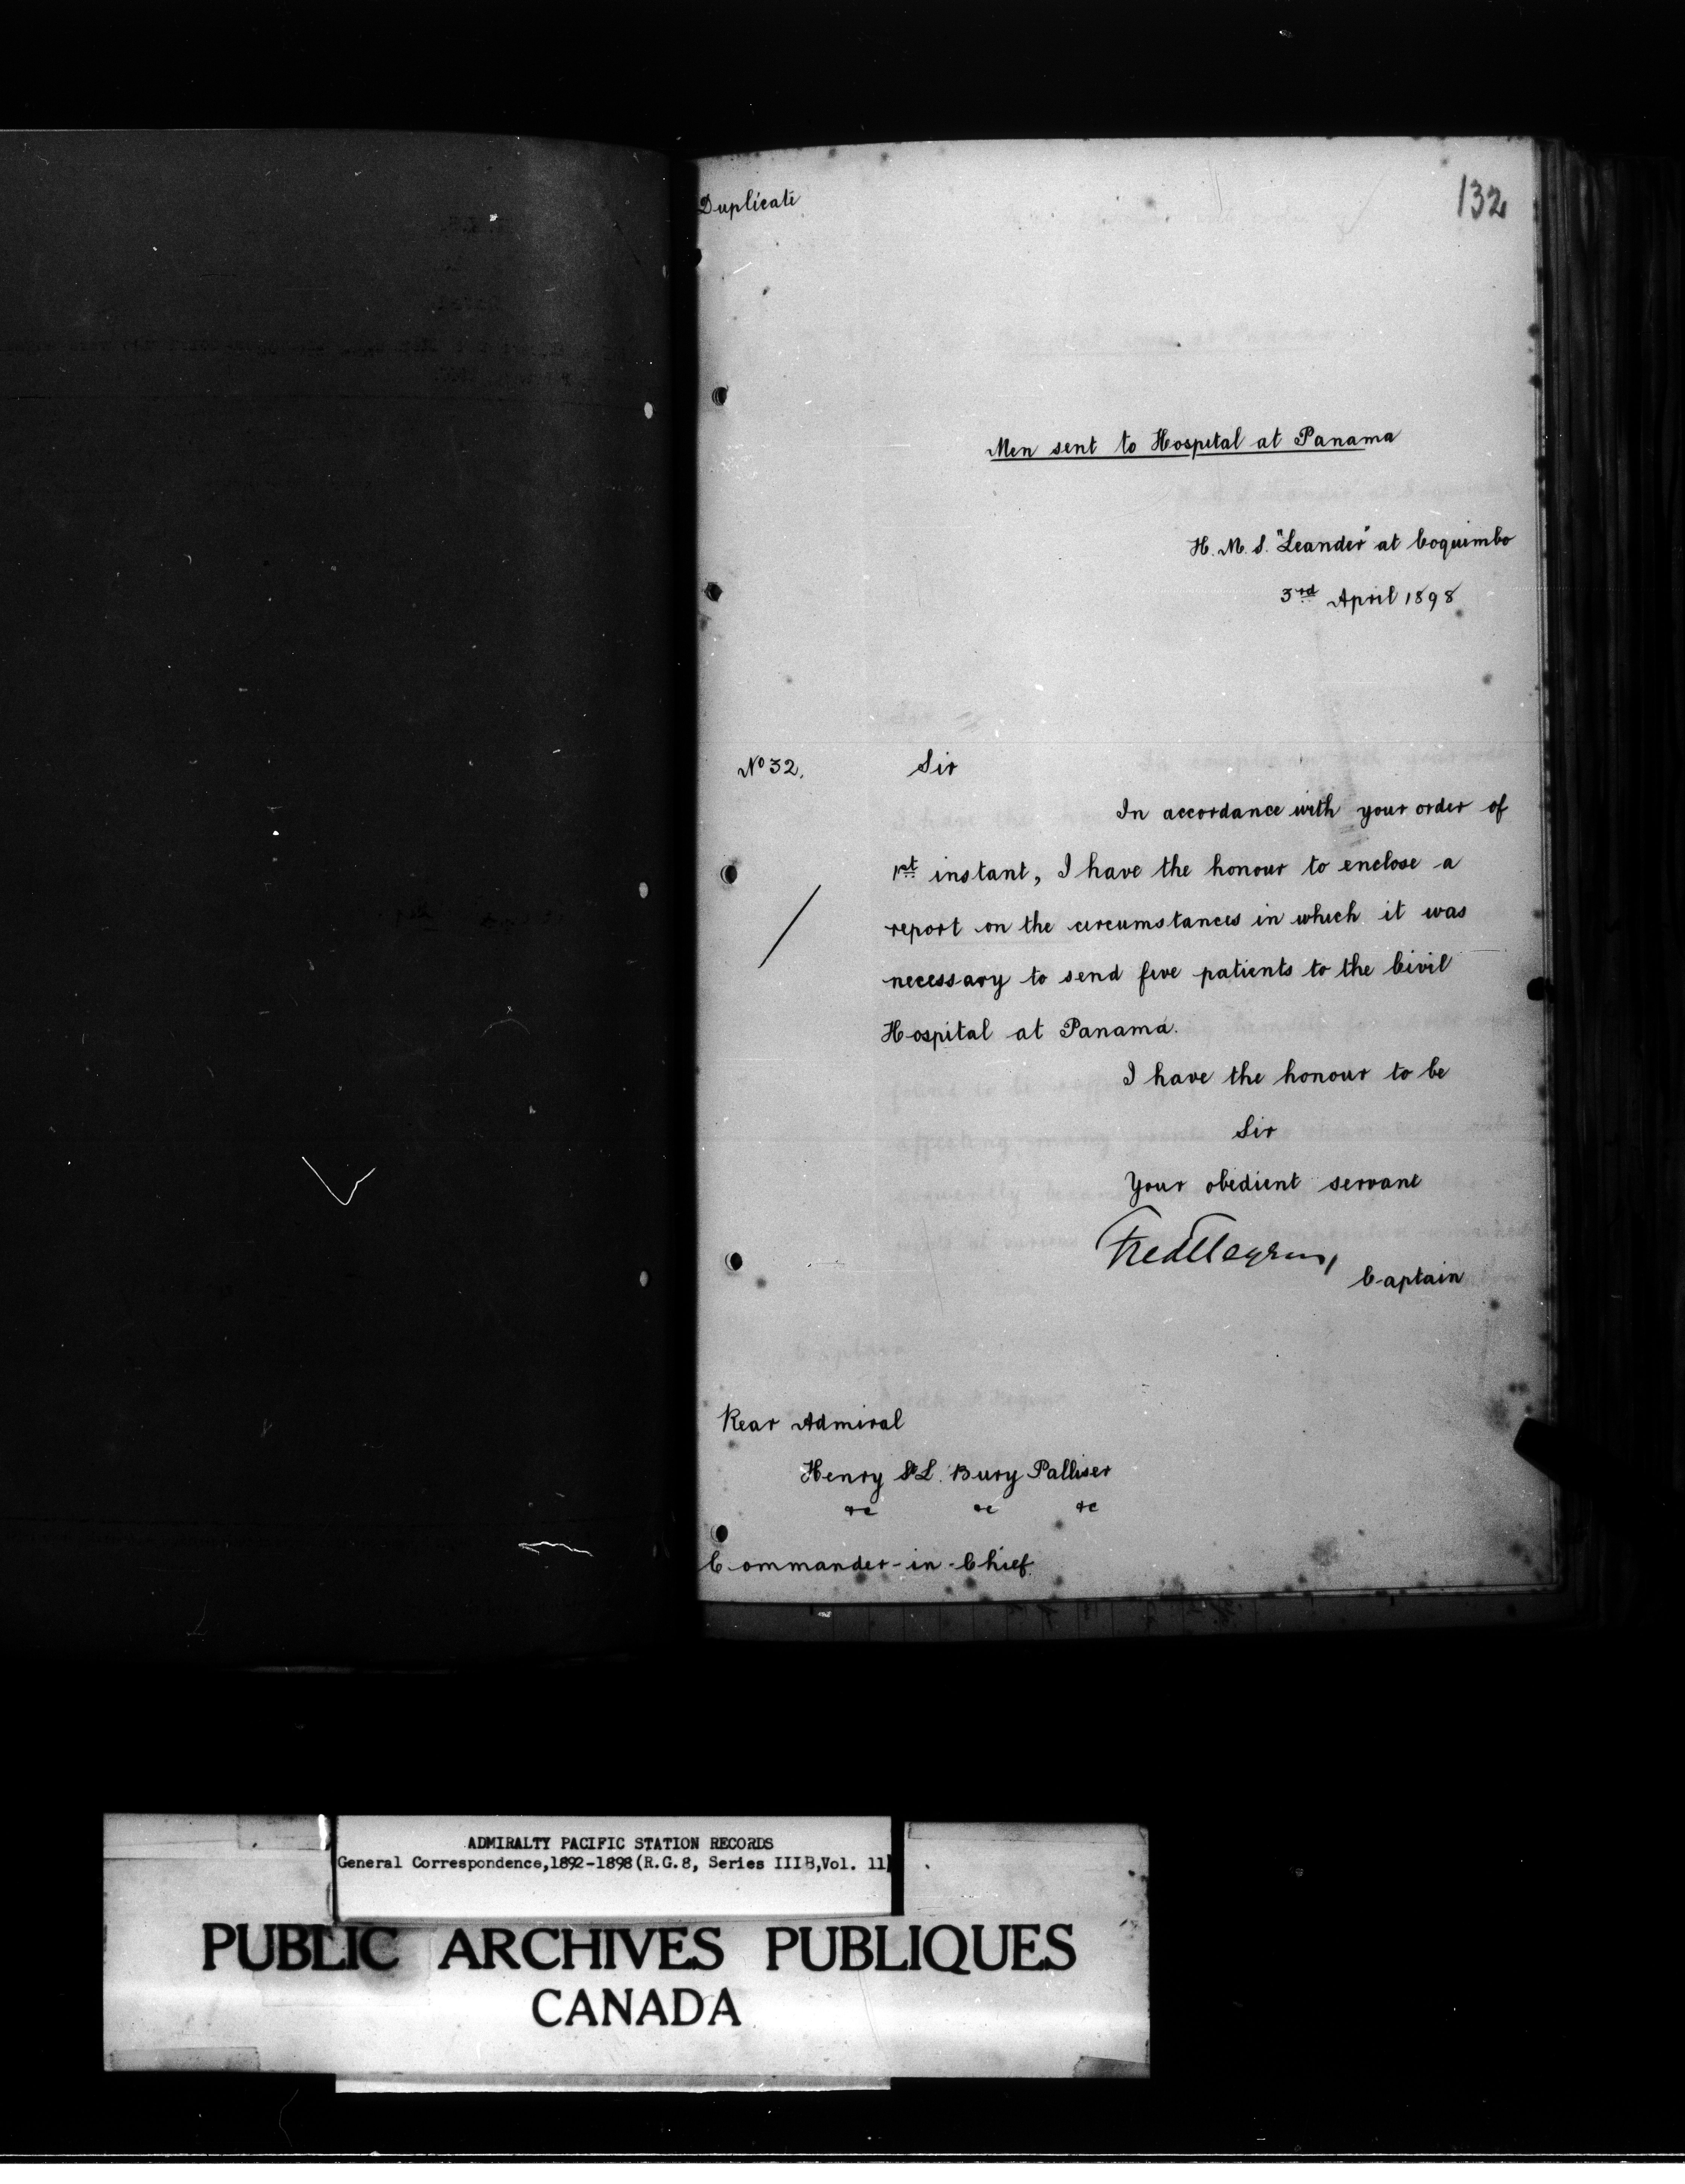 Duplicate
132
Men sent to Hospital at Panama
H. M. S. "Leander" at Coquimbo
3rd April 1898
No 32.
Sir
In accordance with your order of
1st instant, I have the honour to enclose a
report on the circumstances in which it was
necessary to send five patients to the Civil
Hospital at Panama.
I have the honour to be
Sir
Your obedient servant
Captain
Rear Admiral
Henry St L. Bury Palliser
&c &c &c
Commander-in-Chief.
ADMIRALTY PACIFIC STATION RECORDS
General Correspondence,1892-1898(R.G.8, Series IIIB,Vol. 11)
PUBLIC ARCHIVES PUBLIQUES
CANADA